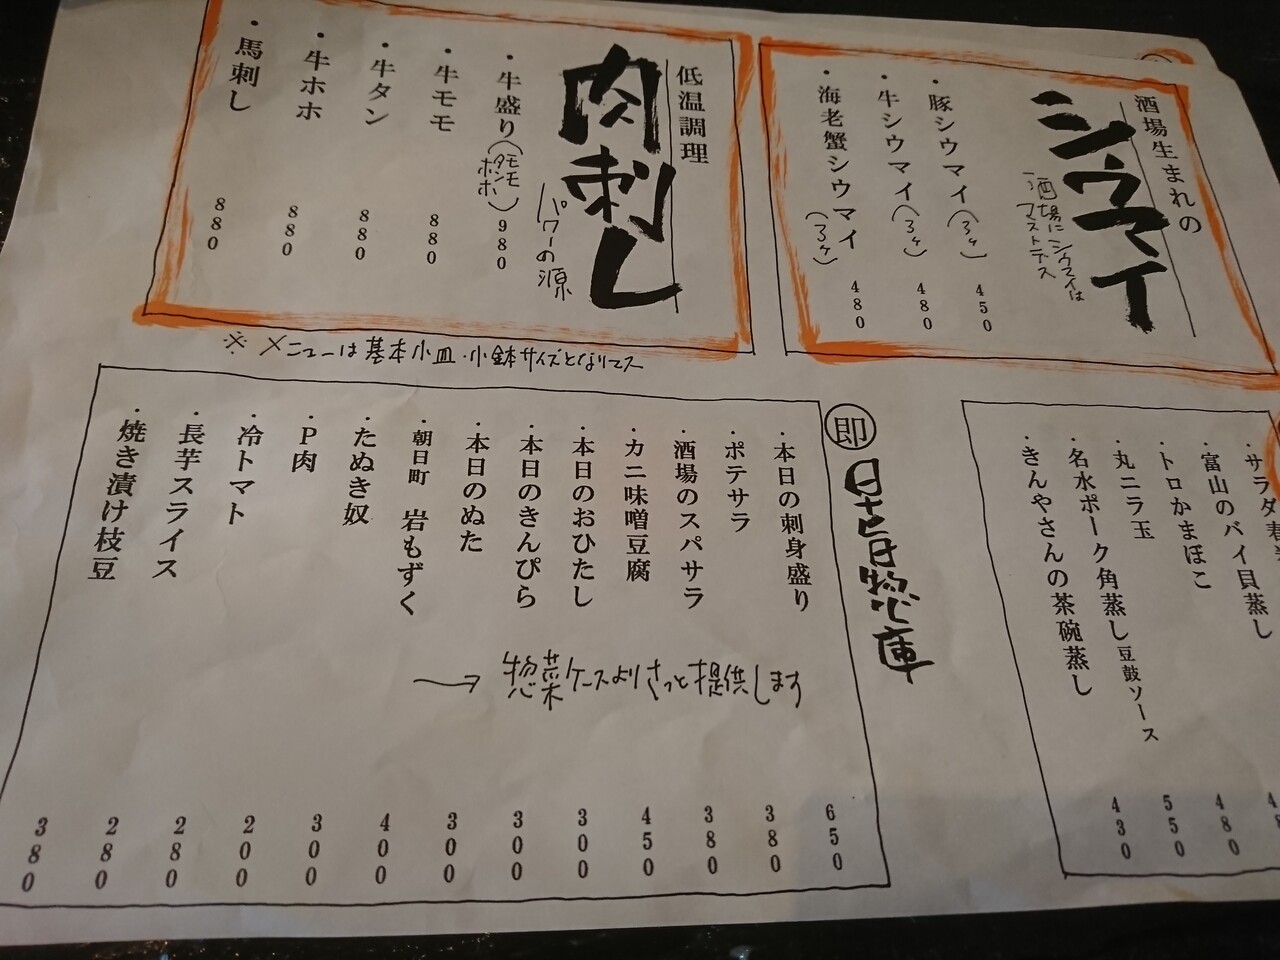 酒場生まれの
シウマイ
酒場にシウマイは
マストデス
・豚シウマイ(3ヶ) 450
・牛シウマイ(3ヶ) 480
・海老蟹シウマイ(3ヶ) 480
低温調理
肉刺し
パワーの源
・牛盛り(モモ タン ホホ) 980
・牛モモ 880
・牛タン 880
・牛ホホ 880
・馬刺し 880
※メニューは基本小皿・小鉢サイズとなりマス
・サラダ春
・富山のバイ貝蒸し
・トロかまぼこ
・丸ニラ玉 480
・名水ポーク角蒸し豆鼓ソース 550
・きんやさんの茶碗蒸し 430
即
惣庫
・本日の刺身盛り 650
・ポテサラ 380
・酒場のスパサラ 380
・カニ味噌豆腐 450
・本日のおひたし 300
・本日のきんぴら 300
・本日のぬた 300
・朝日町 岩もずく 400
・たぬき奴 300
・P肉 200
・冷トマト 280
・長芋スライス 280
・焼き漬け枝豆 380
→ 惣菜ケースよりさっと提供します